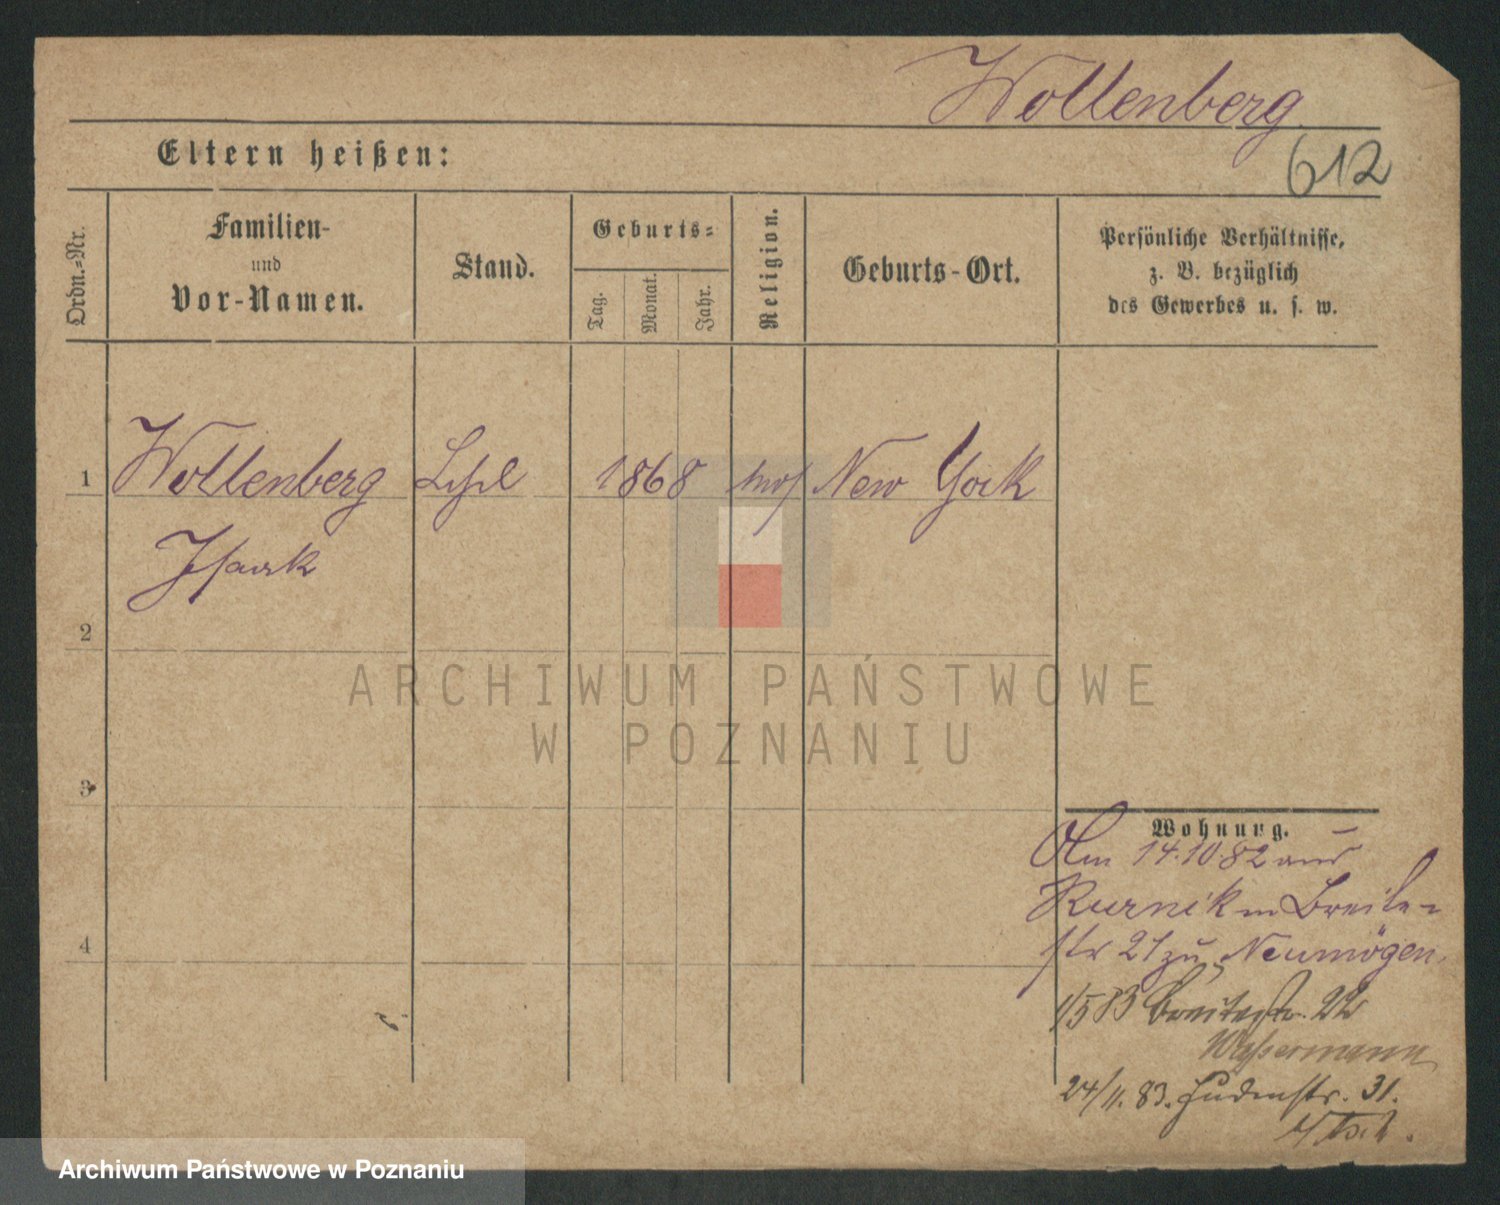 Wollenberg
612
Eltern heißen:
Ordn.=Nr.
Familien-
und
Vor-Namen.
Stand.
Geburts=
Tag.
Monat.
Jahr.
Religion.
Geburts-Ort.
Persönliche Verhältnisse,
z. B. bezüglich
des Gewerbes u. s. w.
1 Wollenberg 1868 mos New York
Isaak
2
ARCHIWUM PAŃSTWOWE
W POZNANIU
3
Wohnung.
Am 14.10.82 aus
Kurnik Breite-
4
str 21 zu Neumögen
1/5 83 Breitestr. 22
Wassermann
24/11. 83. Judenstr. 31.
Archiwum Państwowe w Poznaniu